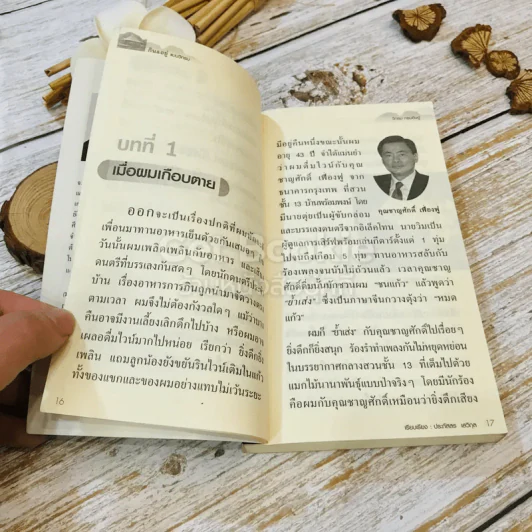 บทที่ 1
เมื่อผมเกือบตาย
ออกจะเป็นเรื่องปกติที่ผม
เพื่อนมาทานอาหารเย็นด้วยกันเสมอ
วันนั้นผมเพลิดเพลินกับอาหาร และ
ดนตรีที่บรรเลงกันสดๆ โดยนักดนตรี
บ้าน เรื่องอาหารการกินลูกน้องมาจัดวาง
ตามเวลา ผมจึงไม่ต้องกังวลใดๆ แม้ว่า
คืนอาจมีงานเลี้ยงเลิกดึกไปบ้าง หรือผมอาจ
เผลอดื่มไวน์มากไปหน่อย เรียกว่า ยิ่งดึกยิ่ง
เพลิน แถมลูกน้องยังขยันรินไวน์เติมในแก้ว
ทั้งของแขกและของผมอย่างแทบไม่เว้นระยะ
16
มีอยู่คืนหนึ่งขณะนั้นผม
อายุ 43 ปี จำได้แม่นยำ
ว่าผมดื่มไวน์กับคุณ
ชาญศักดิ์ เฟื่องฟู จาก
ธนาคารกรุงเทพ ที่สวน
ชั้น 13 บ้านพร้อมพงษ์ โดย
มีนายตุ่ยเป็นผู้ขับกล่อม
คุณชาญศักดิ์ เฟื่องฟู
และบรรเลงดนตรีจากอิเล็คโทน นายวิมเป็น
ผู้ดูแลการเสิร์ฟพร้อมเล่นกีตาร์ตั้งแต่ 1 ทุ่ม
ไปจนถึงเกือบ ทุ่ม ทานอาหารสลับกับ
ร้องเพลงจนนับไม่ถ้วนแล้ว เวลาคุณชาญ
ศักดิ์ดื่มนั้นมักชวนผม "ชนแก้ว" แล้วพูดว่า
"ซ้าเส่ง" ซึ่งเป็นภาษาจีนกวางตุ้งว่า "หมด
แก้ว"
ผมก็ "ซ้าเส่ง" กับคุณชาญศักดิ์ไปเรื่อยๆ
ยิ่งดึกก็ยิ่งสนุก ร้องรำทำเพลงกันไม่หยุดหย่อน
ในบรรยากาศกลางสวนชั้น 13 ที่เต็มไปด้วย
แมกไม้นานาพันธุ์แบบป่าจริงๆ โดยมีนักร้อง
คือผมกับคุณชาญศักดิ์เหมือนว่ายิ่งดึกเสียง
เรียบเรียง : ประภัสสร เสวิกุล 17